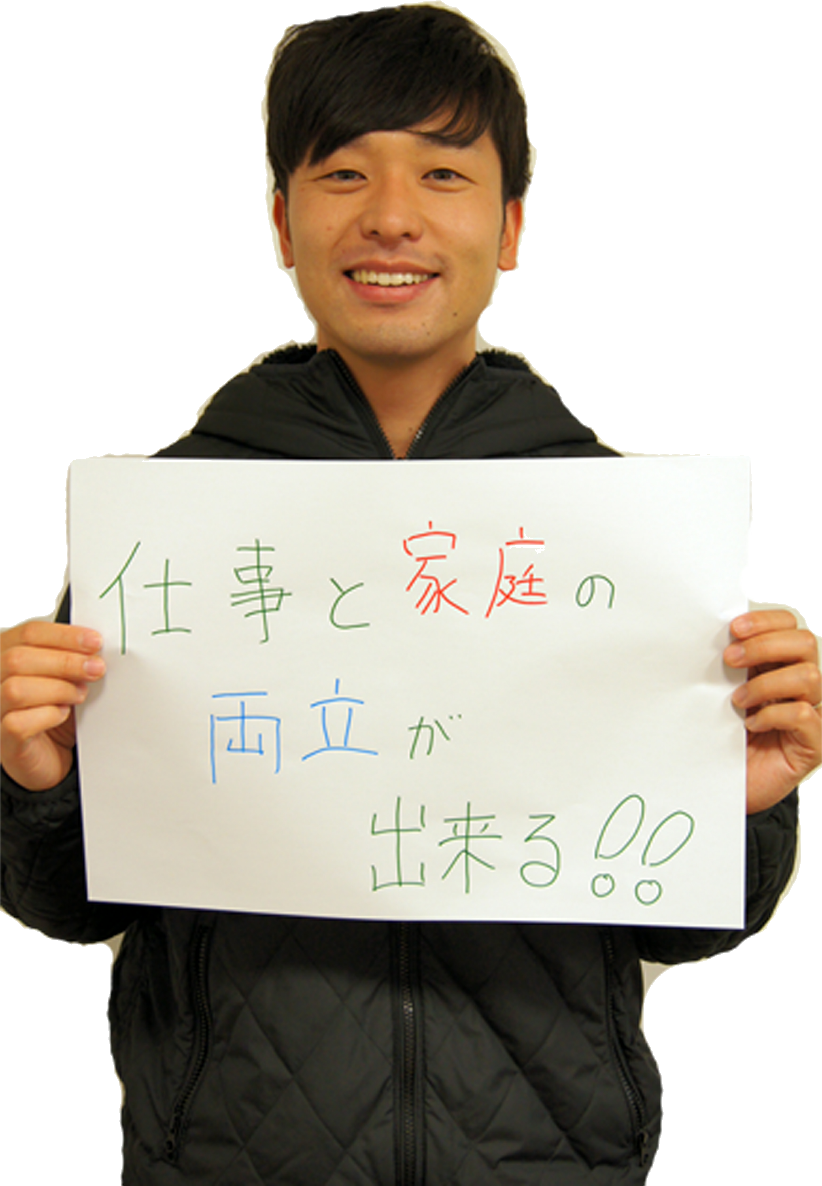 仕事と家庭の
両立が
出来る!!